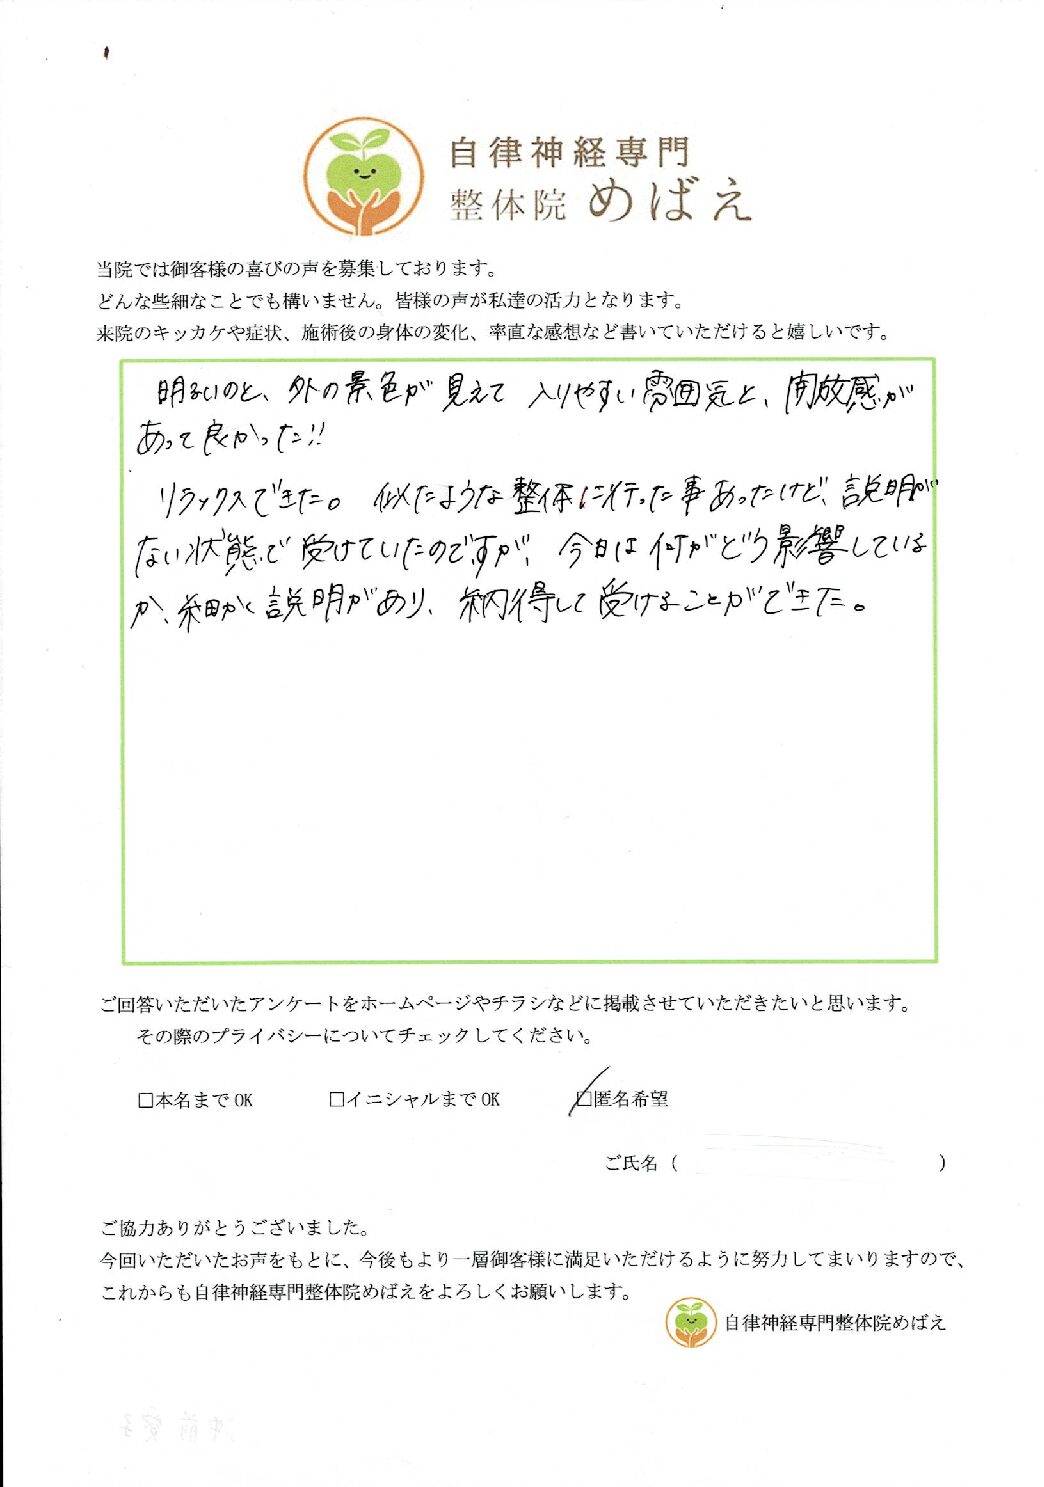 自律神経専門
整体院 めばえ
当院では御客様の喜びの声を募集しております。
どんな些細なことでも構いません。皆様の声が私達の活力となります。
来院のキッカケや症状、施術後の身体の変化、率直な感想など書いていただけると嬉しいです。
明るいのと、外の景色が見えて入りやすい雰囲気と、開放感が
あって良かった!!
リラックスできた。似たような整体に行った事あったけど、説明が
ない状態で受けていたのですが、今日は何がどう影響している
か、細かく説明があり、納得して受けることができた。
ご回答いただいたアンケートをホームページやチラシなどに掲載させていただきたいと思います。
その際のプライバシーについてチェックしてください。
□本名までOK □イニシャルまでOK □匿名希望
ご氏名( )
ご協力ありがとうございました。
今回いただいたお声をもとに、今後もより一層御客様に満足いただけるように努力してまいりますので、
これからも自律神経専門整体院めばえをよろしくお願いします。
自律神経専門整体院めばえ